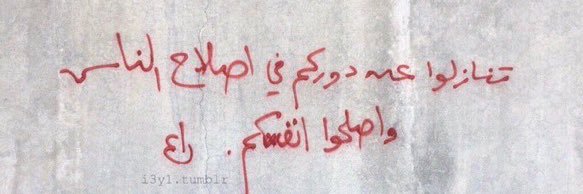 تنازلوا عن دوركم في اصلاح الناس
واصلحوا انفسكم . راع
i3yl.tumblr